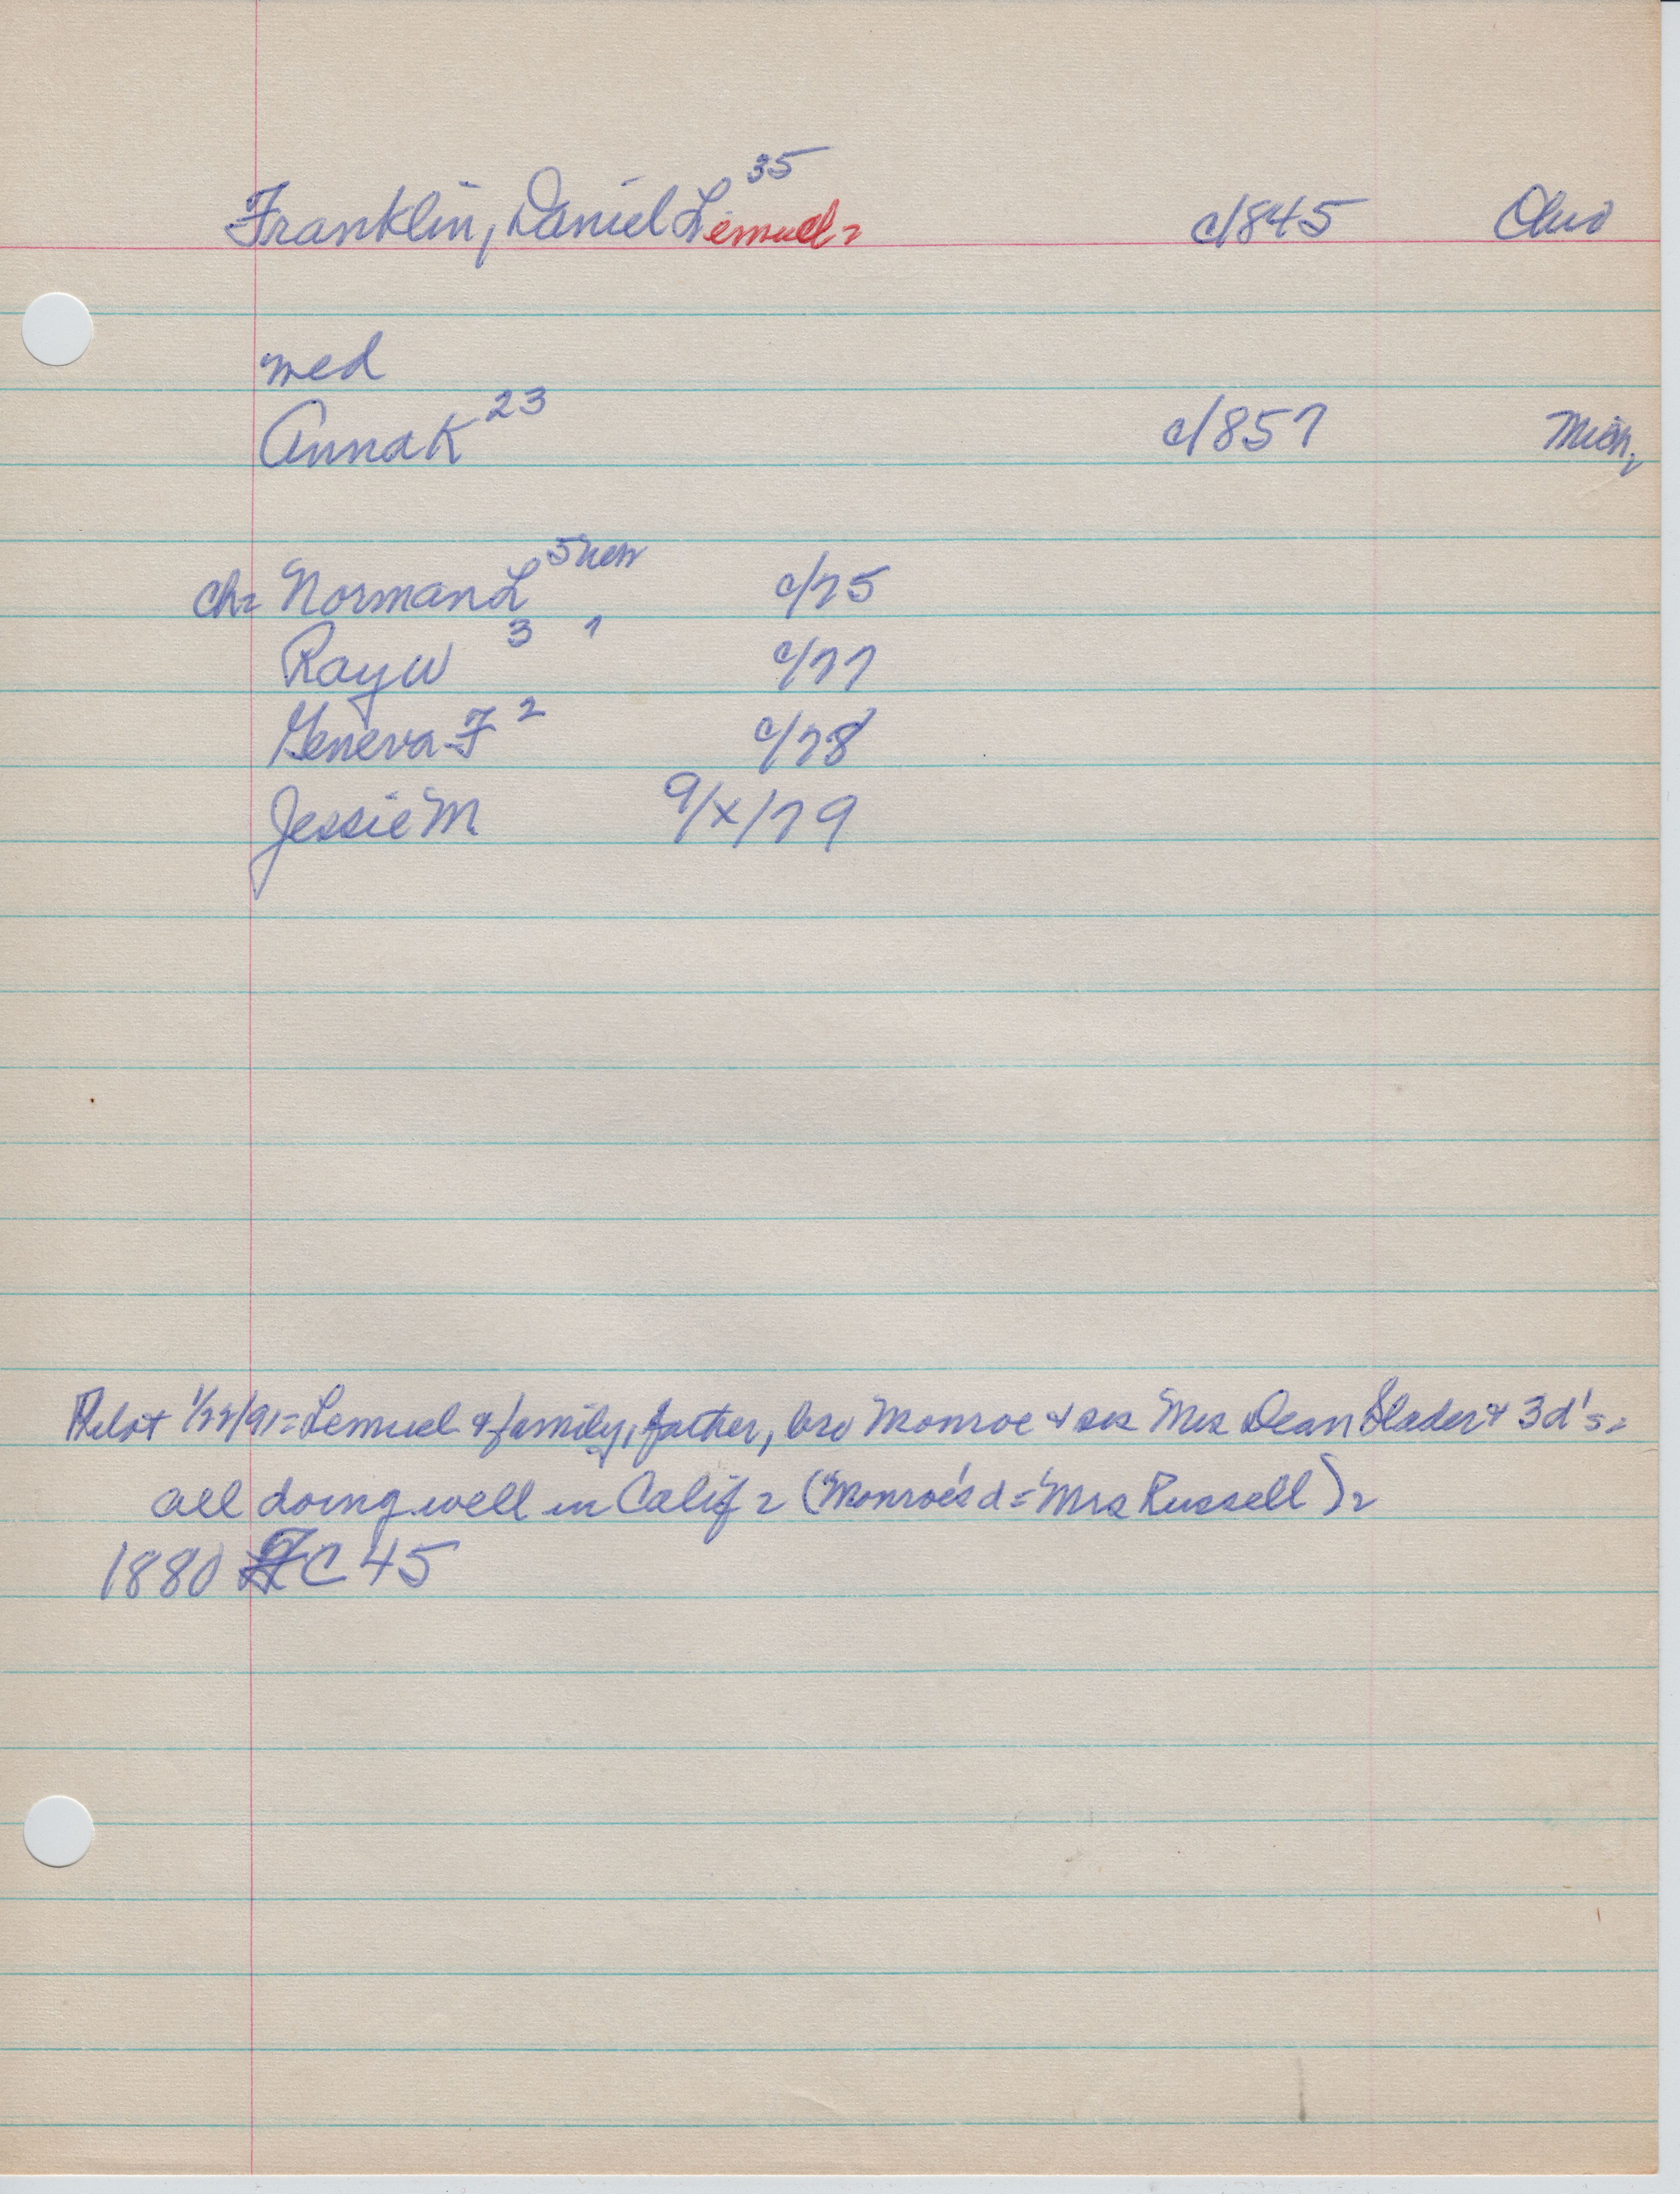 Franklin, Daniel Lemuel= 35 c1845 Ohio
med
Anna K 23 c1857 Mich,
ch= Norman L 5 c/75
Ray W 3 " c/77
Geneva F 2 c/78
Jessie M 9/x/79
Pilot 1/22/91=Lemuel & family, father, bro Monroe & sis Mrs Dean Slader & 3 d's=
all doing well in Calif = (Monroe's d = Mrs Russell)=
1880 C 45